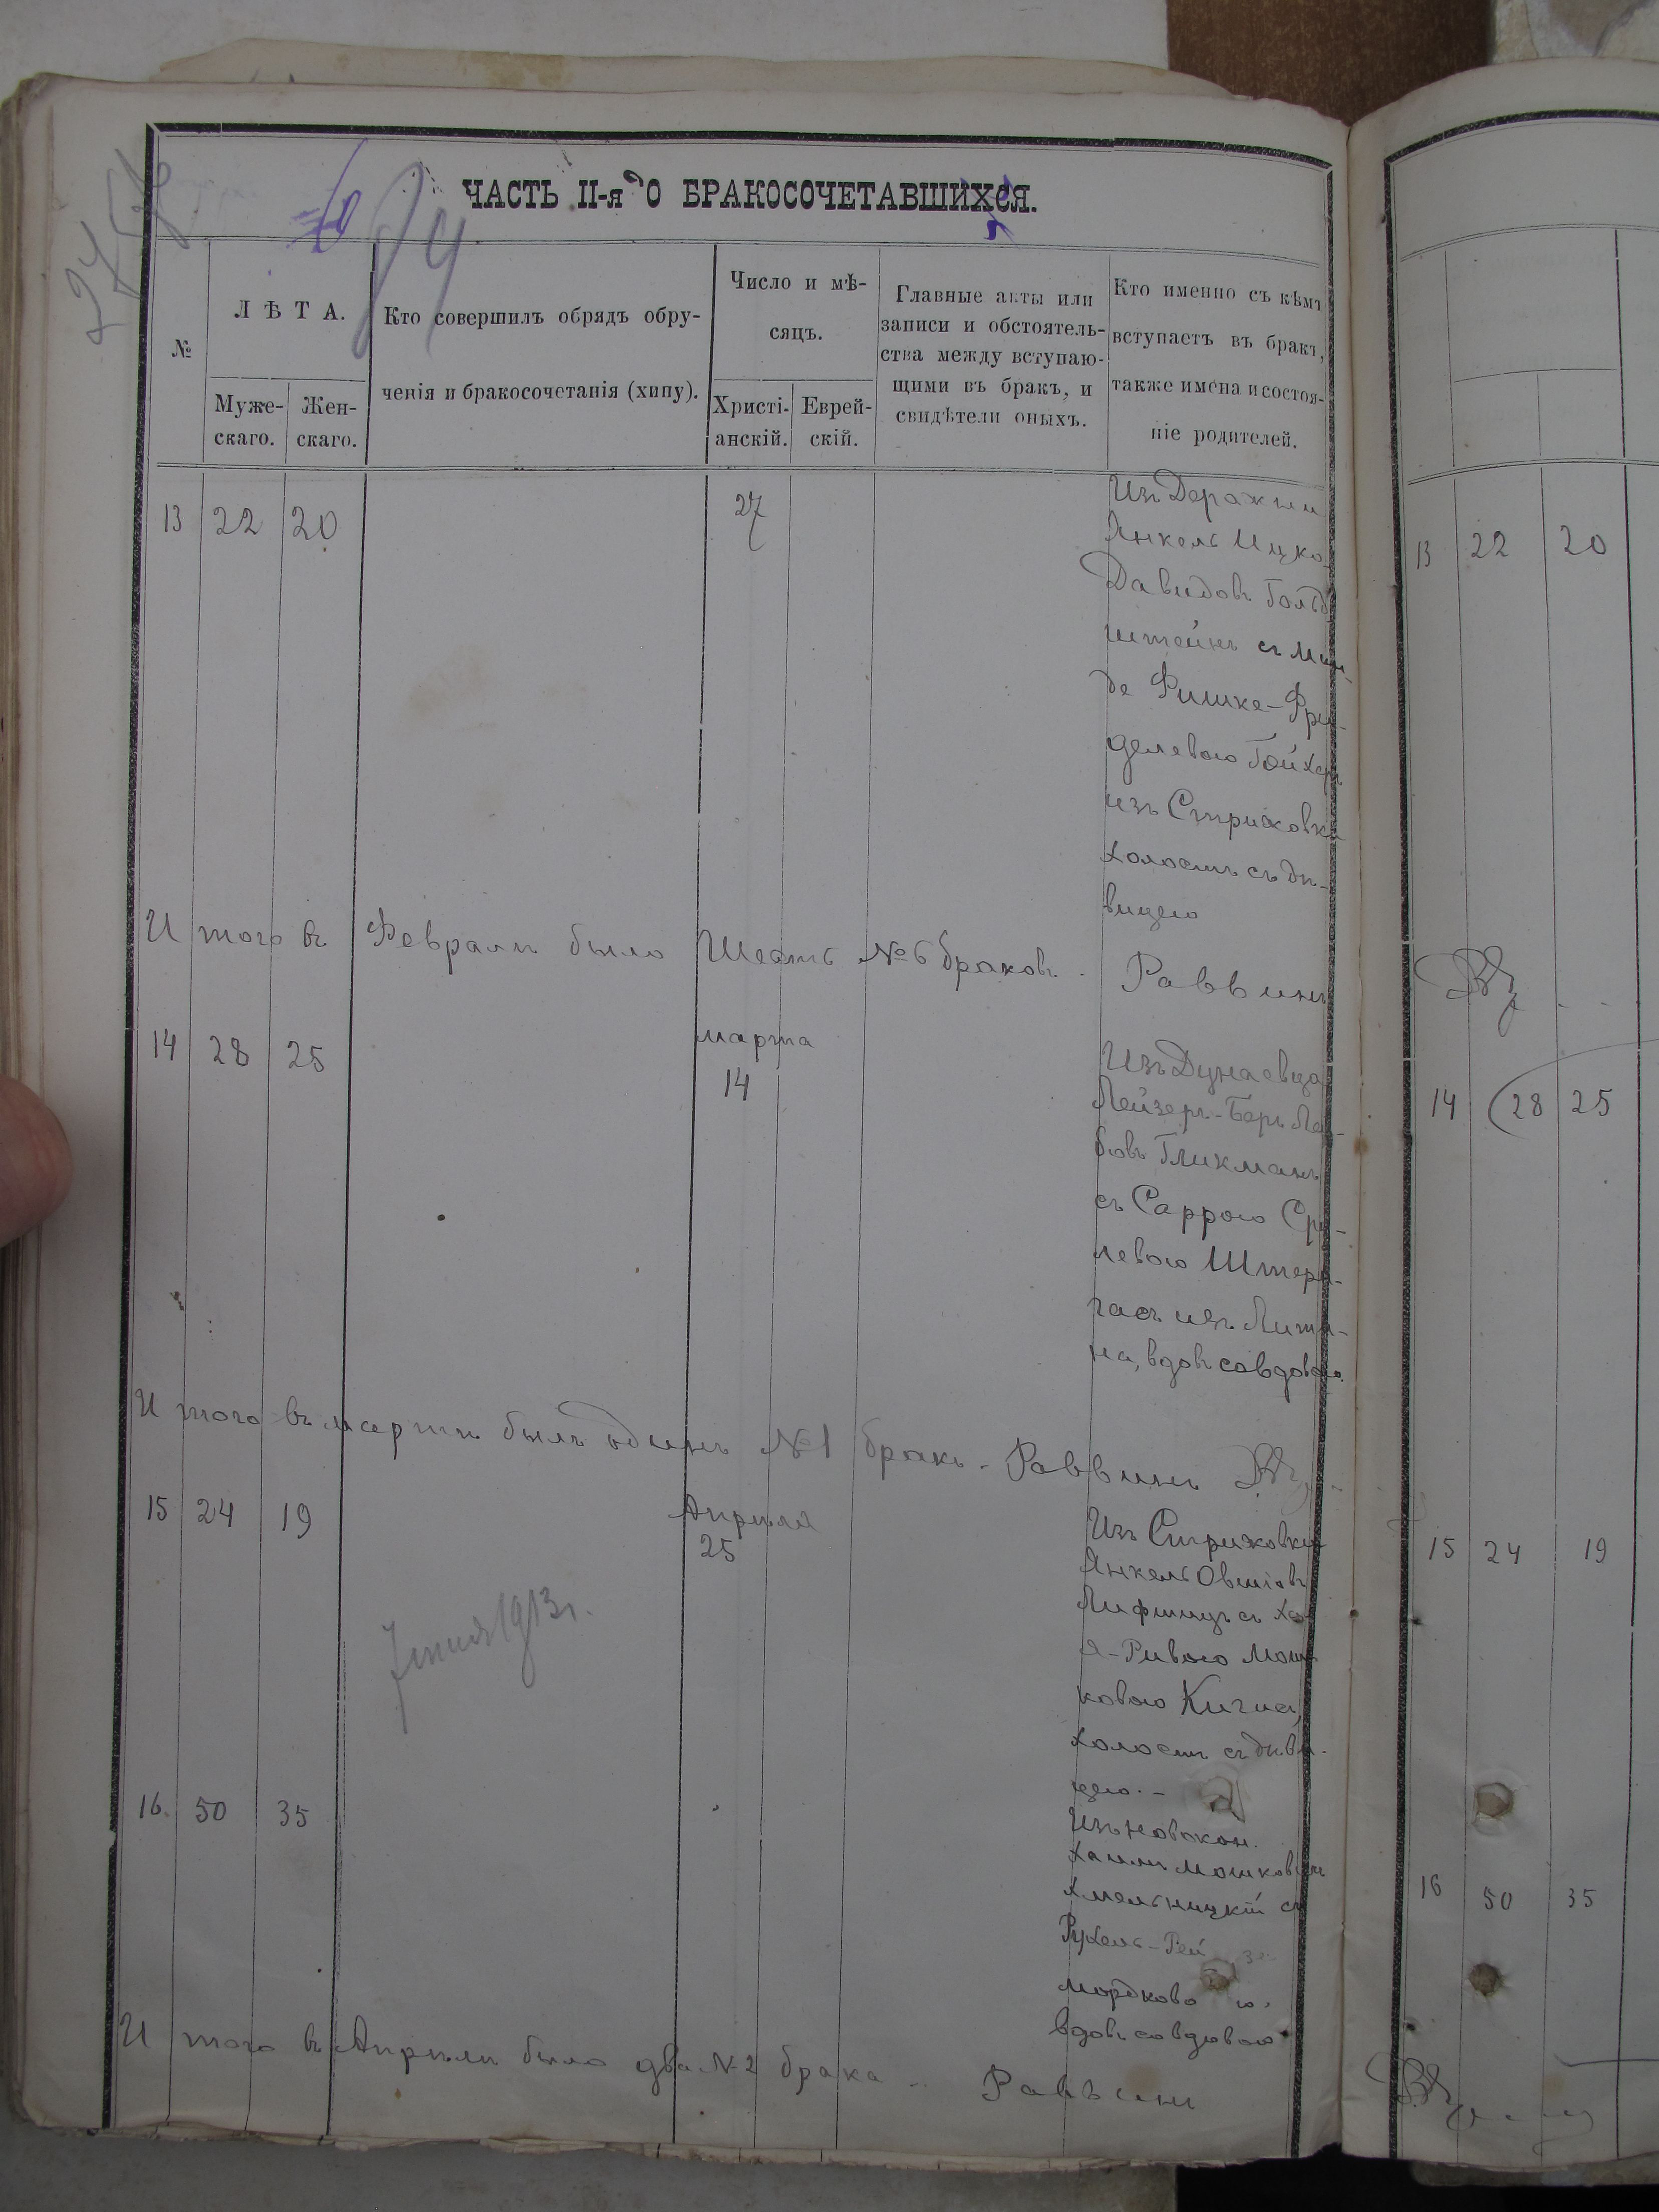 ЧАСТЬ II-я О БРАКОСОЧЕТАВШИХСЯ.
№
ЛѢТА.
Муже-
скаго.
Жен-
скаго.
Кто совершилъ обрядъ обру-
ченія и бракосочетанія (хипу).
Число и мѣ-
сяцъ.
Христі-
анскій.
Еврей-
скій.
Главные акты или
записи и обстоятель-
ства между вступаю-
щими въ бракъ, и
свидѣтели оныхъ.
Кто именно съ кѣмъ
вступаетъ въ бракъ,
также имена и состоя-
ніе родителей.
13 22 20 27
Изъ Деражни
Янкель Ицко-
Давидовъ Гольд-
штейнъ съ Мин-
де Фишке-Фри-
делевою Гойхер
изъ Стрижовки
холостъ съ дѣ-
вицею
Итого въ Февралѣ было Шесть №6 браковъ. Раввинъ
14 28 25 марта
14
Изъ Дунаевца
Лейзеръ-Беръ Лей-
бовъ Гликманъ
съ Саррою Сру-
левою Штерн-
гасъ изъ Лити-
на, вдовъ со вдовою.
Итого въ мартѣ былъ одинъ №1 бракъ. Раввинъ
15 24 19 Апрѣля
25
Изъ Стрижовки
Янкель Овшіовъ
Лифшицъ съ Ха-
я-Ривою Мош-
ковою Кигна,
холостъ съ дѣви-
цею.
1913г.
16 50 35
Изъ Новокон.
Хаимъ Мошковичъ
Хмельницкій съ
Рухель-Рей
Мордково ю.
вдовъ со вдовою
Итого въ Апрѣлѣ было два №2 брака Раввинъ
13 22 20
14 28 25
15 24 19
16 50 35